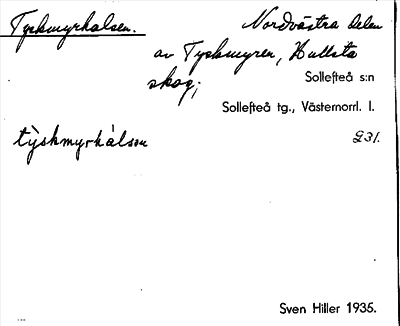 Tyskmyrhalsen. Nordvästra delen
av Tyskmyren, Hullsta
skog;
Sollefteå s:n
Sollefteå tg., Västernorrl. l.
tỳskmyrhálsen 231.
Sven Hiller 1935.